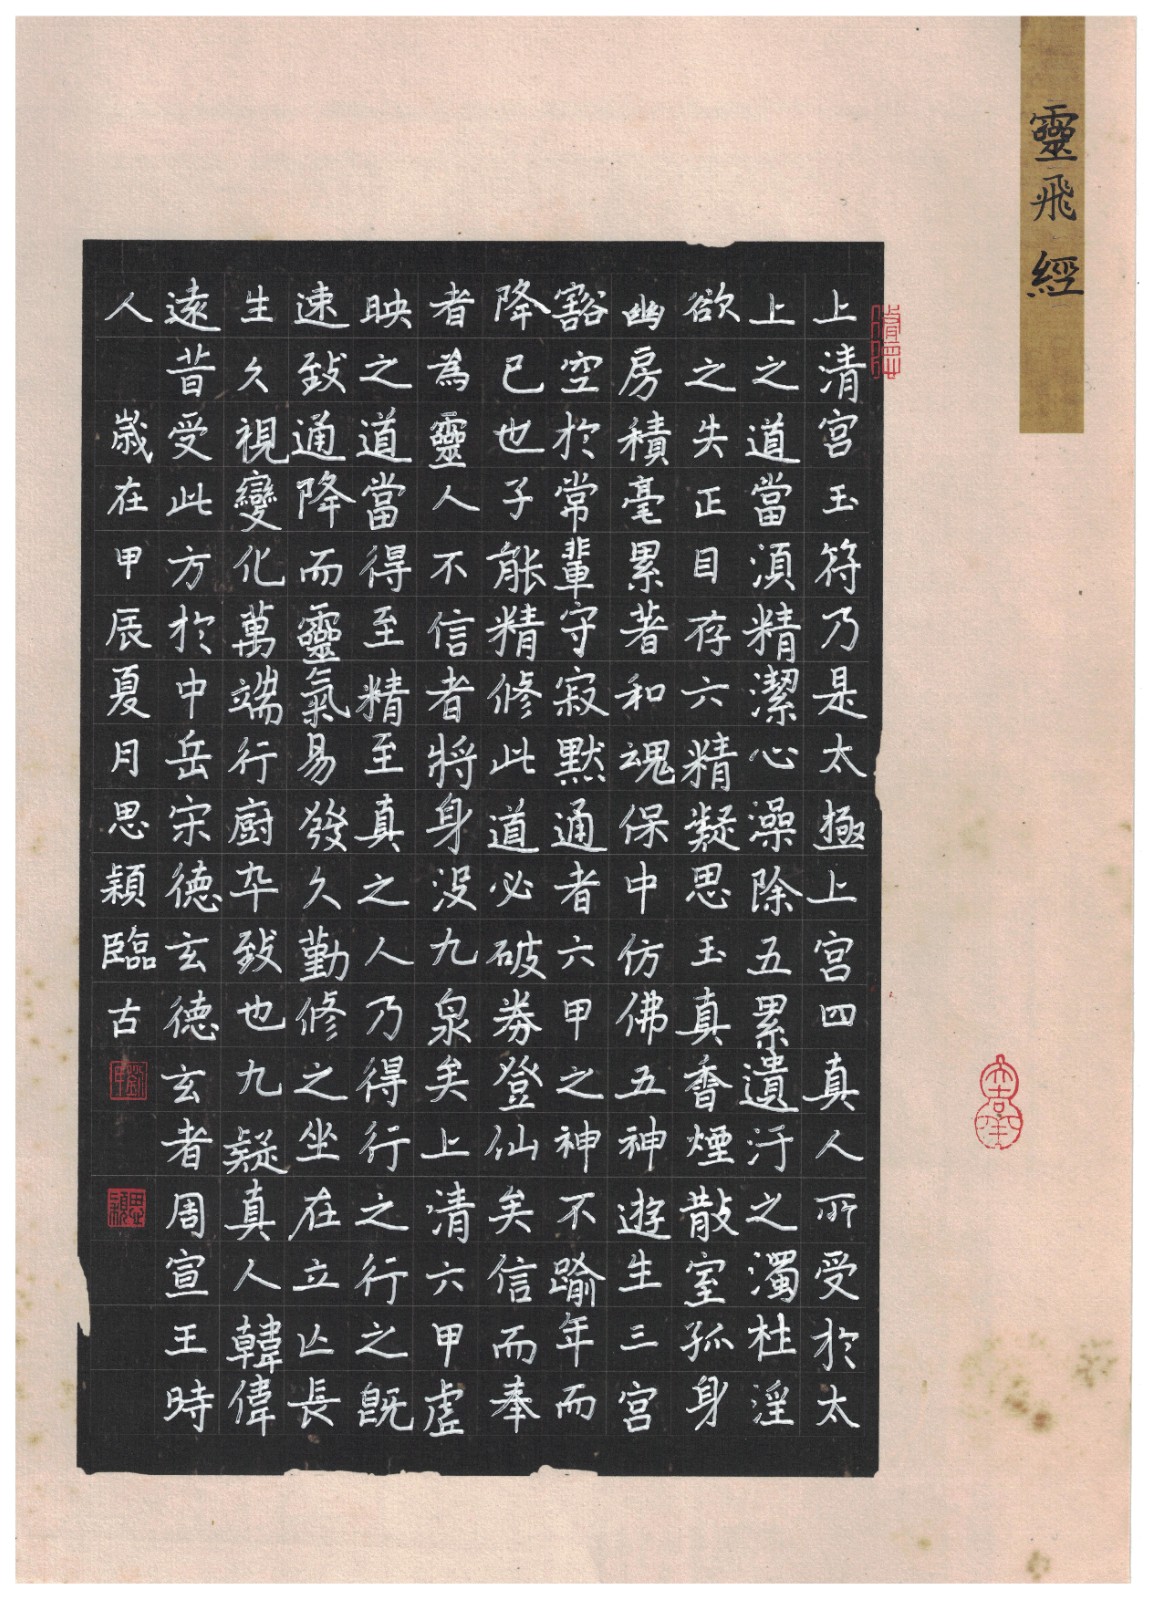 靈飛經
上清宮玉符乃是太極上宮四真人所受於太
上之道當須精潔心澡除五累遺汙之濁杜淫
欲之失正目存六精凝思玉真香煙散室孤身
幽房積毫累著和魂保中仿佛五神遊生三宮
豁空於常輩守寂默通者六甲之神不踰年而
降已也子能精修此道必破券登仙矣信而奉
者為靈人不信者將身沒九泉矣上清六甲虛
映之道當得至精至真之人乃得行之行之既
速致通降而靈氣易發久勤修之坐在立亾長
生久視變化萬端行廚卒致也九疑真人韓偉
遠昔受此方於中岳宋德玄德玄者周宣王時
人 歲在甲辰夏月思穎臨古
思穎